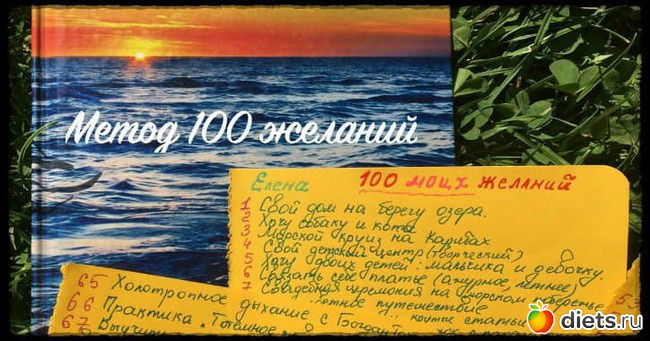 Метод 100 желаний
Елена 100 моих желаний
1 Свой дом на берегу озера.
2 Хочу собаку и кота
3 Морской круиз на Карибах
4 Свой детский центр (творческий)
5 Хочу двоих детей: мальчика и девочку.
6 Связать себе платье (ажурное, летнее)
7 Свадебная церемония на морском побережье
Летнее путешествие
65 Холотропное дыхание с
66 Практика "Тотемное
67
diets.ru